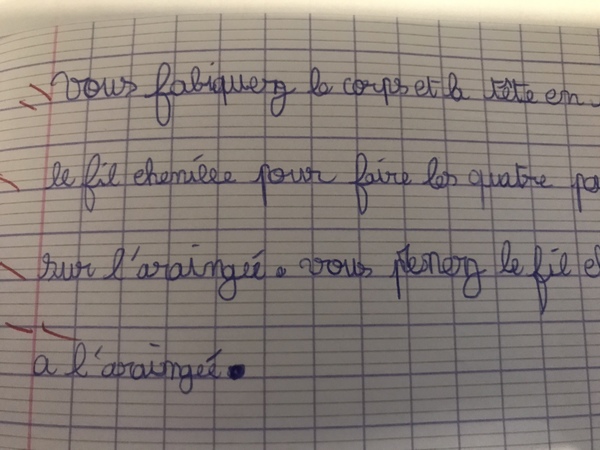 vous fabiquerz le corps et la tête en
le fil chenillee pour faire les quatre pa
sur l'araingée. vous penerz le fil e
a l'araingée.